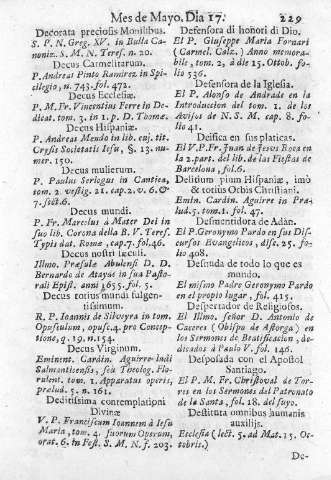 Mes de Mayo. Dia 17. 229
Decorata preciosis Monilibus.
S. P. N. Greg. XV. in Bulla Ca-
noniz. S. M. N. Teres. n. 20.
Decus Carmelitarum.
P. Andreas Pinto Ramirez in Spi-
cilegio, n. 743. fol. 472.
Decus Ecclesiæ.
P. M. Fr. Vincentius Ferre in De-
dicat. tom. 3. in 1. p. D. Thomæ.
Decus Hispaniæ.
P. Andreas Mendo in lib. cuj. tit.
Crysis Societatis Iesu, §. 13. nu-
mer. 150.
Decus mulierum.
P. Paulus Serlogus in Cantica,
tom. 2. vestig. 21. cap. 2. v. 6. &
7. sect. 6.
Decus mundi.
P. Fr. Marcelus a Mater Dei in
suo lib. Corona della B. V. Teres.
Typis dat. Roma, cap. 7. fol. 46.
Decus nostri sæculi.
Illmo. Præsule Abulensi D. D.
Bernardo de Atayde in sua Pasto-
rali Epist. anni 1655. fol. 5.
Decus totius mundi fulgen-
tissimum.
R. P. Ioannis de Silveyra in tom.
Opusculum, opusc. 4. pro Concep-
tione, q. 19. n. 154.
Decus Virginum.
Eminent. Cardin. Aguirre Ludi
Salmanticensis, seu Theolog. Flo-
rulent. tom. 1. Apparatus operis,
prælud. 5. n. 161.
Deditissima contemplationi
Divinæ
V. P. Franciscum Ioannem à Iesu
Maria, tom. 4. suorum Operum,
orat. 6. in Fest. S. M. N. f. 203.
Defensora di honori di Dio.
El P. Giuseppe Maria Fornari
(Carmel. Calz.) Anno memora-
bile, tom. 2, à die 15. Ottob. fo-
lio 536.
Defensora de la Iglesia.
El P. Alonso de Andrade en la
Introduccion del tom. 1. de los
Avisos de N. S. M. cap. 8. fo-
lio 41.
Deifica en sus platicas.
El V. P. Fr. Juan de Jesus Roca en
la 2. part. del lib. de las Fiestas de
Barcelona, fol. 6.
Delitium pium Hispaniæ, imò
& totius Orbis Christiani.
Emin. Cardin. Aguirre in Præ-
lud. 5. tom. 1. fol. 47.
Desmentidora de Adàn.
El P. Geronymo Pardo en sus Dis-
cursos Evangelicos, disc. 25. fo-
lio 408.
Desnuda de todo lo que es
mundo.
El mismo Padre Geronymo Pardo
en el propio lugar, fol. 415.
Despertador de Religiosos.
El Illmo. señor D. Antonio de
Caceres (Obispo de Astorga) en
los Sermones de Beatificacion, de-
dicados à Paulo V. fol. 146.
Desposada con el Apostol
Santiago.
El P. M. Fr. Christoval de Tor-
res en los Sermones del Patronato
de la Santa, fol. 18. del suyo.
Destituta omnibus humanis
auxilijs.
Ecclesia (lect. 5. ad Mat. 15. Oc-
tobris.)
De-